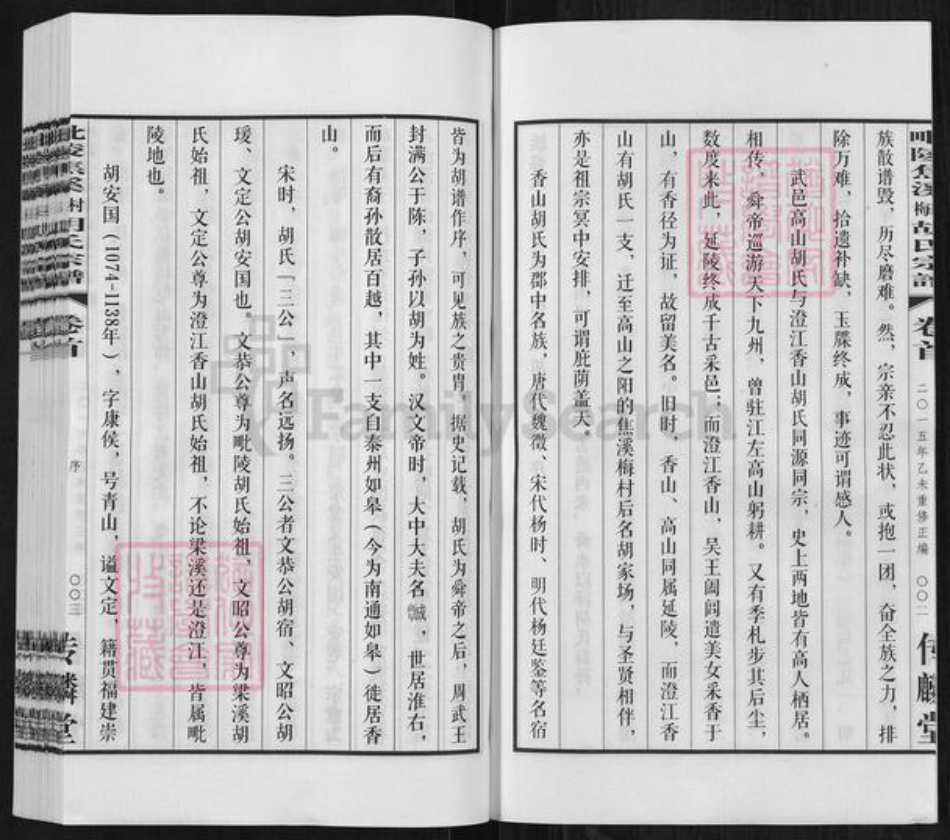 毗陵焦溪梅村胡氏宗谱 卷首
二〇一五年乙未重修正编 〇〇二
族散谱毁，历尽磨难。然，宗亲不忍此状，或抱一团，奋全族之力，排
除万难，拾遗补缺，玉牒终成，事迹可谓感人。
武邑高山胡氏与澄江香山胡氏同源同宗，史上两地皆有高人栖居。
相传，舜帝巡游天下九州，曾驻江左高山躬耕。又有季札步其后尘，
数度来此，延陵终成千古采邑；而澄江香山，吴王阖闾遣美女采香于
山，有香径为证，故留美名。旧时，香山、高山同属延陵，而澄江香
山有胡氏一支，迁至高山之阳的焦溪梅村后名胡家场，与圣贤相伴，
亦是祖宗冥中安排，可谓庇荫盖天。
香山胡氏为郡中名族，唐代魏徵、宋代杨时、明代杨廷鉴等名宿
皆为胡谱作序，可见族之贵胄。据史记载，胡氏为舜帝之后，周武王
封满公于陈，子孙以胡为姓。汉文帝时，大中大夫名，世居淮右，
而后有裔孙散居百越，其中一支自泰州如皋（今为南通如皋）徙居香
山。
宋时，胡氏「三公」，声名远扬。三公者文恭公胡宿、文昭公胡
瑗、文定公胡安国也。文恭公尊为毗陵胡氏始祖，文昭公尊为梁溪胡
氏始祖，文定公尊为澄江香山胡氏始祖，不论梁溪还是澄江，皆属毗
陵地也。
胡安国（1074-1138年），字康侯，号青山，谥文定，籍贯福建崇
卷首
序 〇〇三
FamilySearch